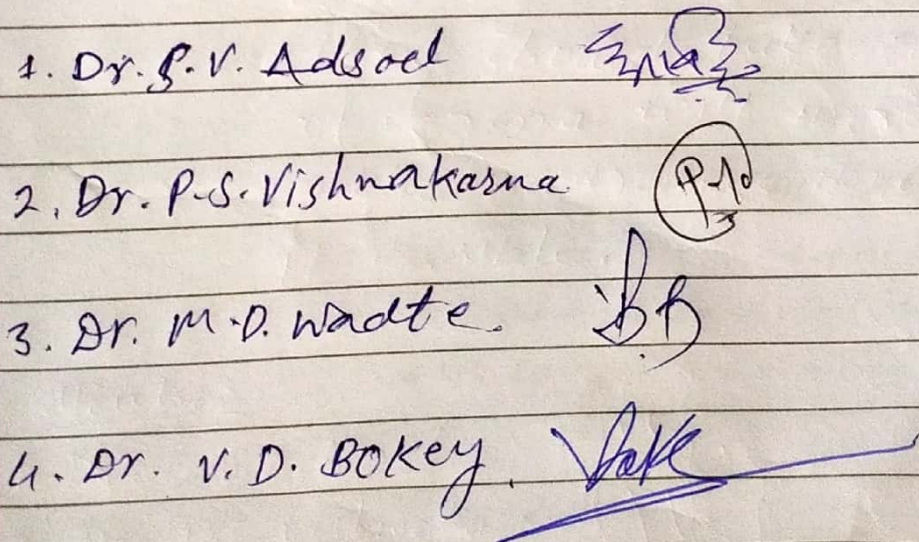 1. Dr. S. V. Adsod
2. Dr. P.S. Vishwakarma
3. Dr. M.D. Wadte.
4. Dr. V. D. BOKEY.